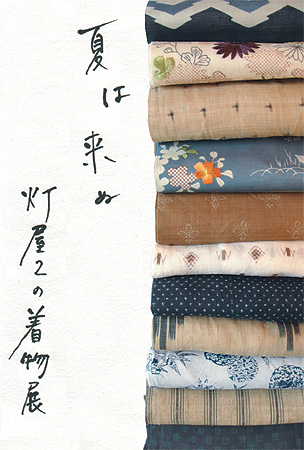 夏は来ぬ
灯屋2の着物展